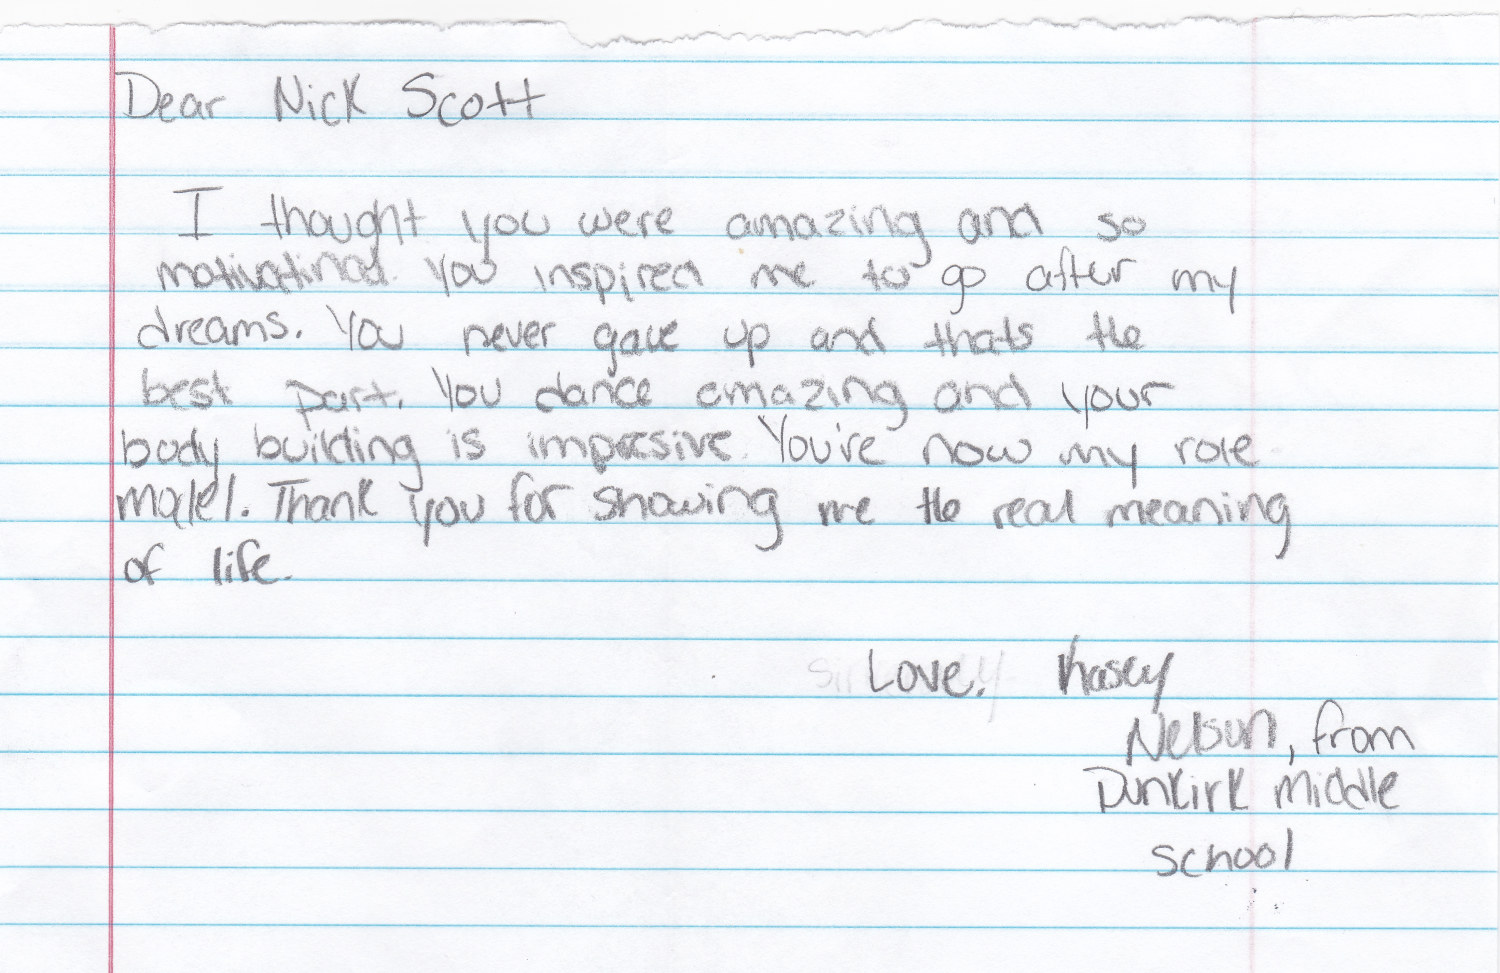 Dear Nick Scott
I thought you were amazing and so
motivatinal. You inspired me to go after my
dreams. You never gave up and thats the
best part. You dance amazing and your
body building is impressive. You're now my role
model. Thank you for showing me the real meaning
of life.
Love, Kasey
Nelson, from
Dunkirk middle
school